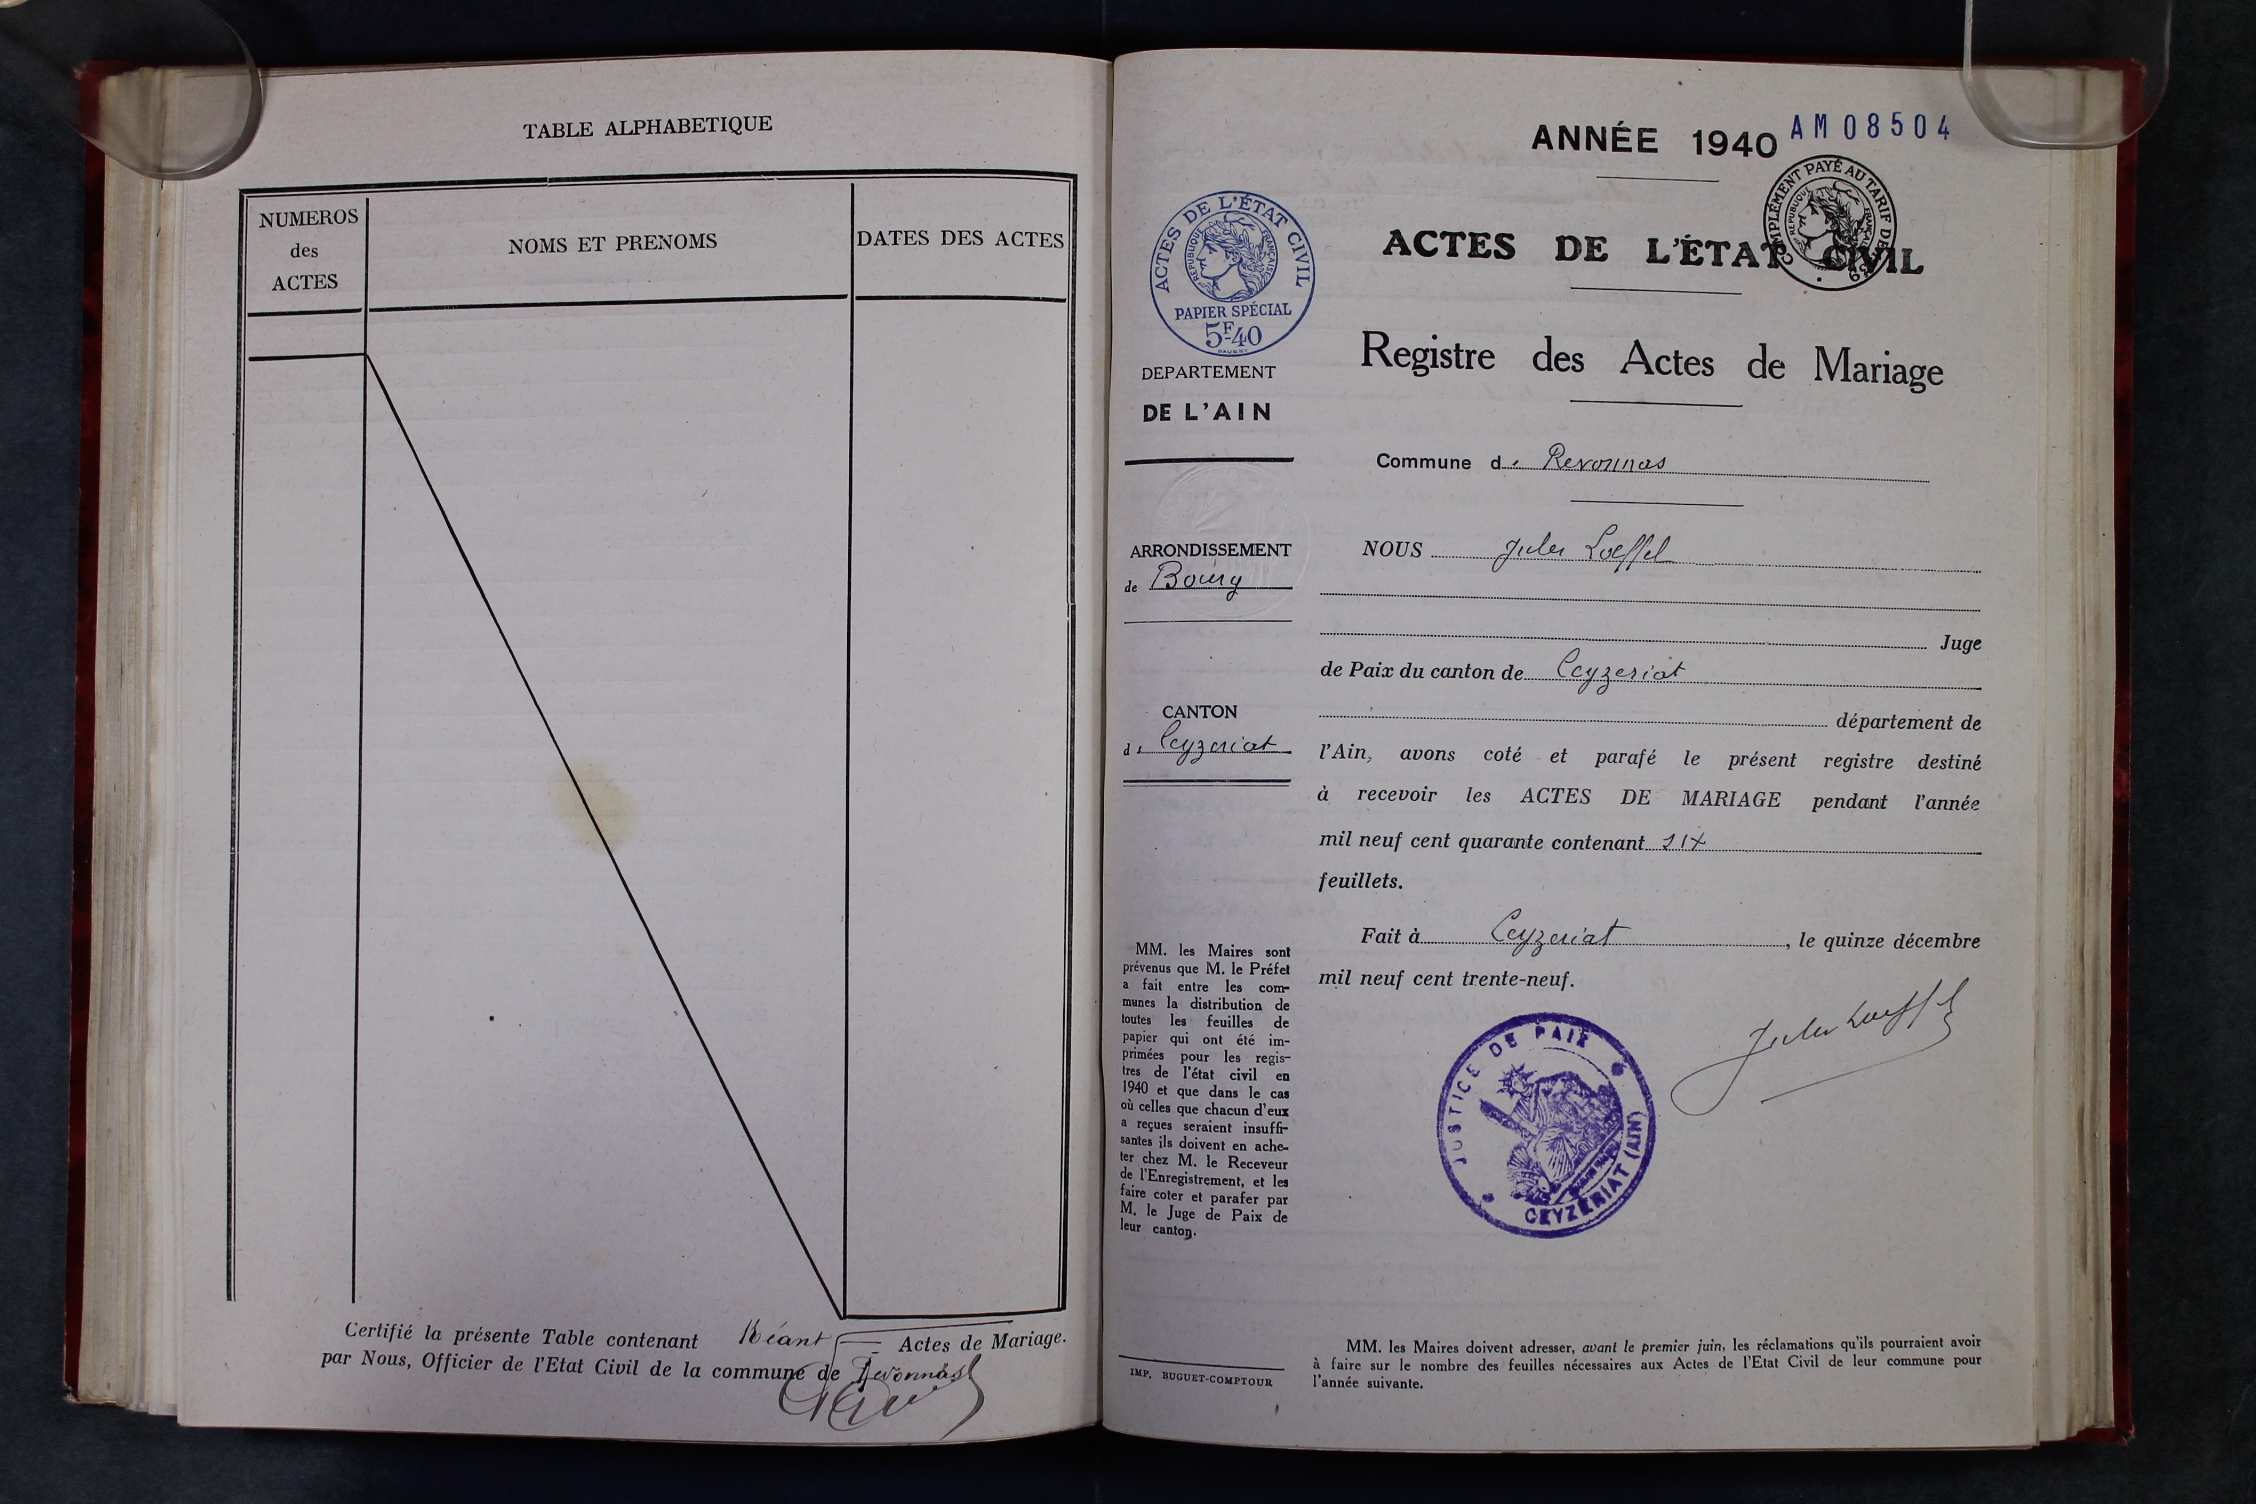 TABLE ALPHABETIQUE
NUMEROS
des
ACTES
NOMS ET PRENOMS
DATES DES ACTES
Certifié la présente Table contenant Néant Actes de Mariage.
par Nous, Officier de l'Etat Civil de la commune de Revonnas
ANNÉE 1940
AM08504
COMPLÉMENT PAYÉ AU TARIF DE 1939
RÉPUBLIQUE FRANÇAISE
ACTES DE L'ÉTAT CIVIL
RÉPUBLIQUE FRANÇAISE
PAPIER SPÉCIAL
5F.40
DAUSSY
ACTES DE L'ÉTAT CIVIL
Registre des Actes de Mariage
DEPARTEMENT
DE L'AIN
ARRONDISSEMENT
de Bourg
CANTON
d. Ceyzeriat
MM. les Maires sont
prévenus que M. le Préfet
a fait entre les com-
munes la distribution de
toutes les feuilles de
papier qui ont été im-
primées pour les regis-
tres de l'état civil en
1940 et que dans le cas
où celles que chacun d'eux
a reçues seraient insuffi-
santes ils doivent en ache-
ter chez M. le Receveur
de l'Enregistrement, et les
faire coter et parafer par
M. le Juge de Paix de
leur canton.
IMP. BUGUET-COMPTOUR
Commune d. Revonnas
NOUS Jules Loeffel
Juge
de Paix du canton de Ceyzeriat
département de
l'Ain, avons coté et parafé le présent registre destiné
à recevoir les ACTES DE MARIAGE pendant l'année
mil neuf cent quarante contenant six
feuillets.
Fait à Ceyzeriat, le quinze décembre
mil neuf cent trente-neuf.
Jules Loeffel
JUSTICE DE PAIX
CEYZÉRIAT (AIN)
MM. les Maires doivent adresser, avant le premier juin, les réclamations qu'ils pourraient avoir
à faire sur le nombre des feuilles nécessaires aux Actes de l'Etat Civil de leur commune pour
l'année suivante.